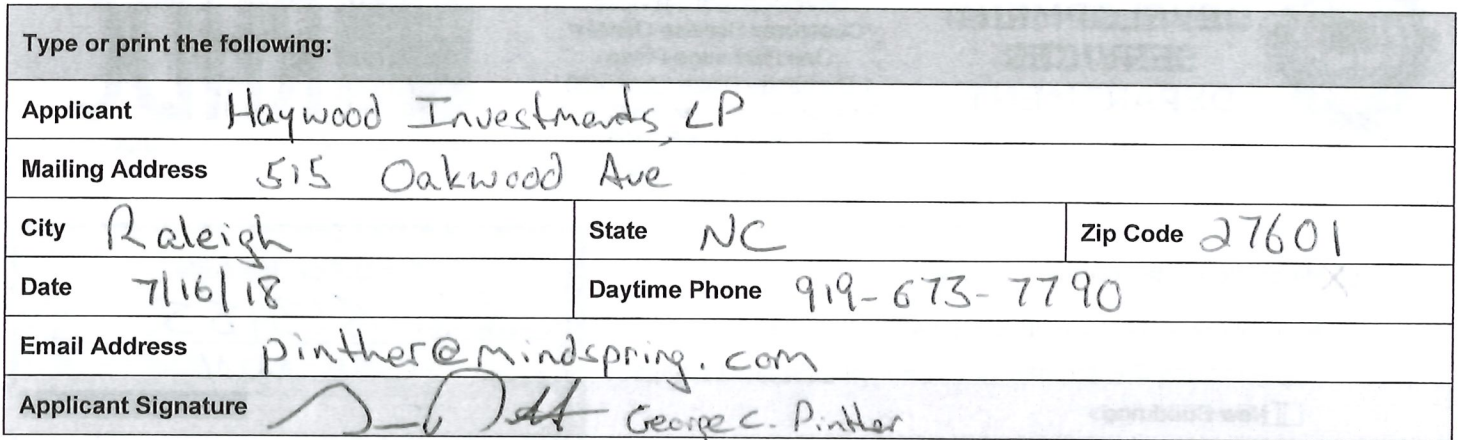 Type or print the following:
Applicant Haywood Investments, LP
Mailing Address 515 Oakwood Ave
City Raleigh State NC Zip Code 27601
Date 7/16/18 Daytime Phone 919-673-7790
Email Address pinther@mindspring.com
Applicant Signature George C. Pinther